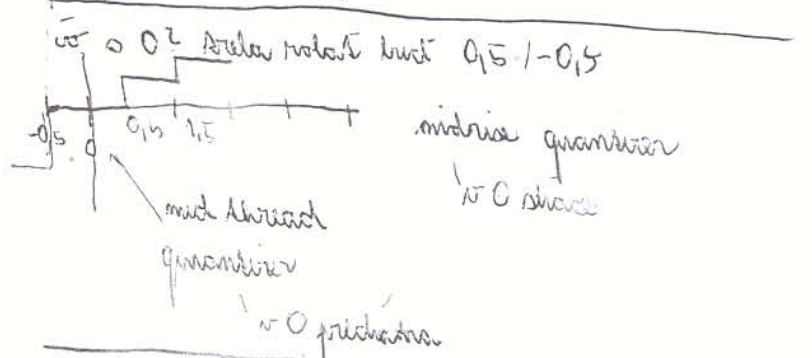 0? treba robiť buď 0,5 / -0,5
-0,5 0 0,5 1,5
midrise quantizer
v 0 skáče
mid thread
quantizer
v 0 prichádza